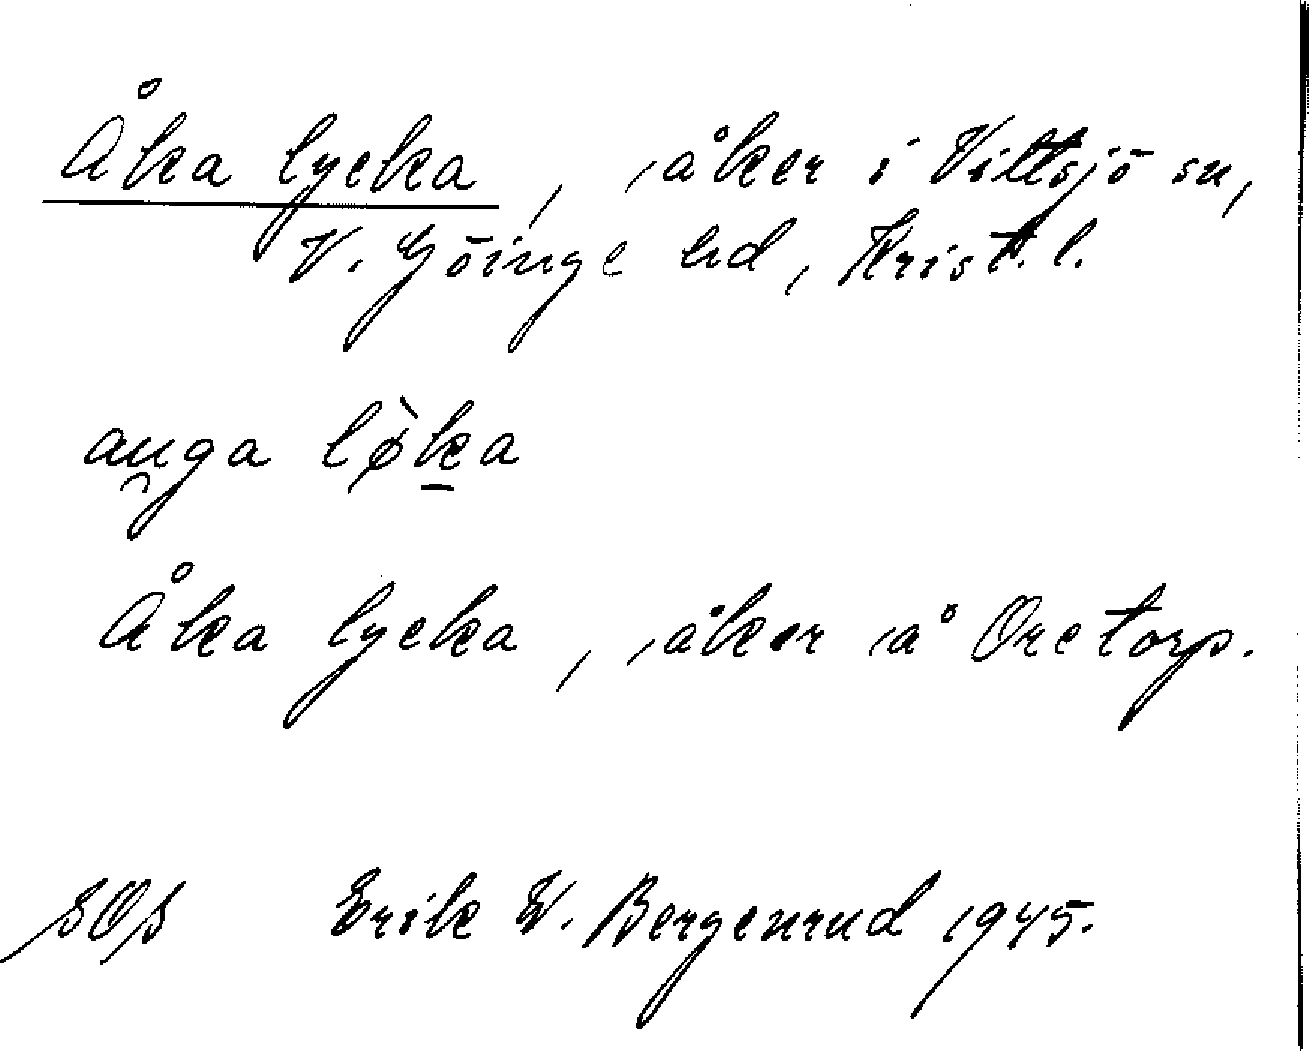 Åka lycka, åker i Vittsjö sn,
V. Göinge hd, Krist. l.
au̯ga lø̀ḵa
Åka lycka, åker å Oretorp.
SOS Erik W. Bergenrud 1945.